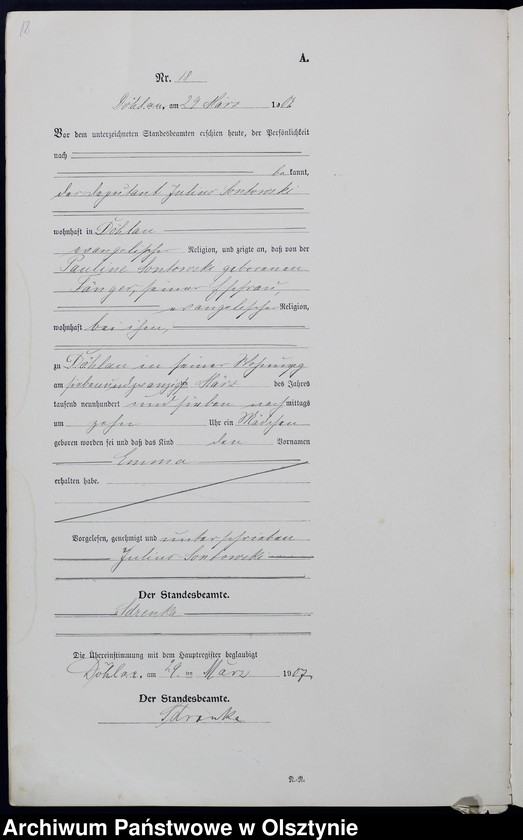 18
A.
Nr. 18
Döhlau, am 29 März 1907
Vor dem unterzeichneten Standesbeamten erschien heute, der Persönlichkeit
nach
bekannt,
der Deputant Julius Sontowski
wohnhaft in Döhlau
evangelischer Religion, und zeigte an, daß von der
Pauline Sontowski geborenen
Fänger, seiner Ehefrau,
evangelischer Religion,
wohnhaft bei ihm,
zu Döhlau in seiner Wohnung
am siebenundzwanzigsten März des Jahres
tausend neunhundert und sieben nachmittags
um zehn Uhr ein Mädchen
geboren worden sei und daß das Kind den Vornamen
Emma
erhalten habe.
Vorgelesen, genehmigt und unterschrieben
Julius Sontowski
Der Standesbeamte.
Sdrenka
Die Übereinstimmung mit dem Hauptregister beglaubigt
Döhlau, am 29. März 1907
Der Standesbeamte.
Sdrenka
N.-R.
Archiwum Państwowe w Olsztynie